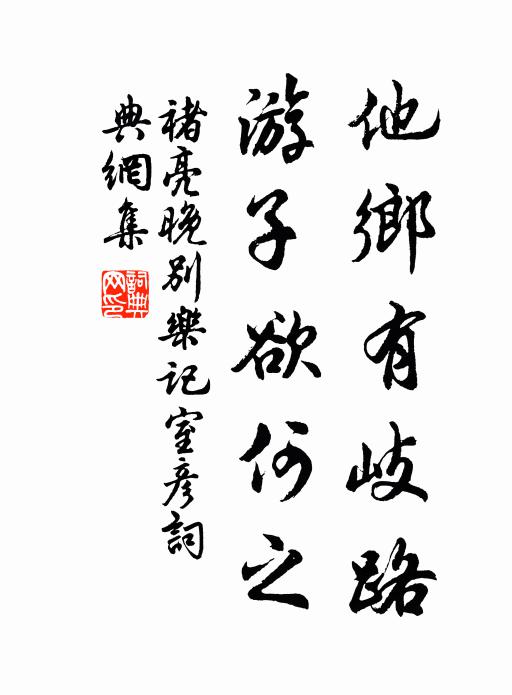 他鄉有岐路
游子欲何之
褚亮晚別樂記室彥詞
典網集
詞典
网印